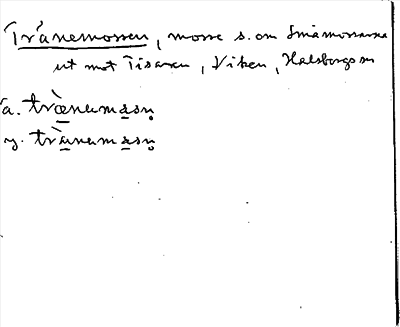 Tranemossen, mosse s. om Småmossarna
ut mot Tisaren, Viken, Halsbergs sn
a. trænumåsn̥
y. trànumåsn̥